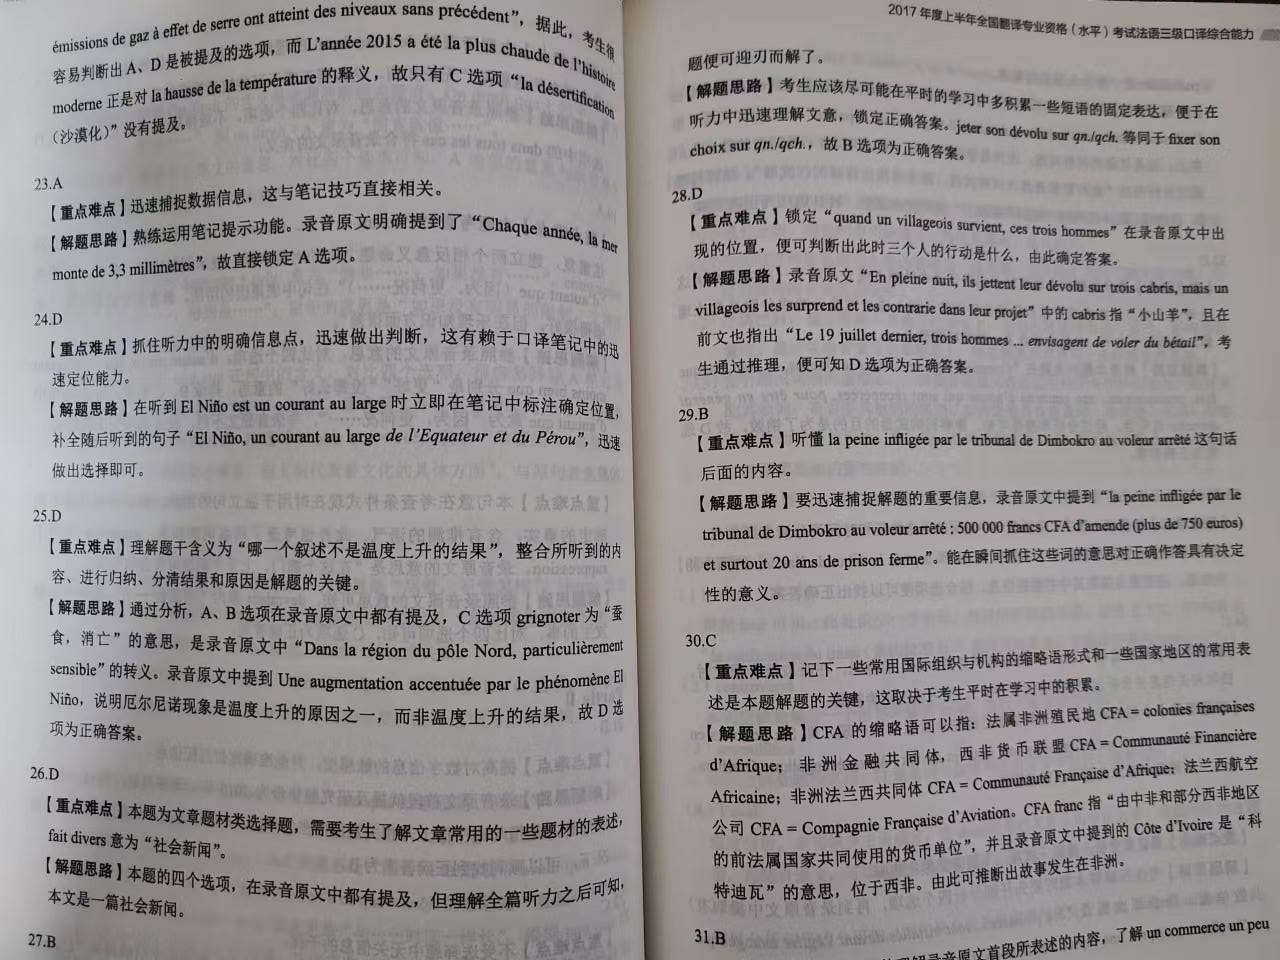 émissions de gaz à effet de serre ont atteint des niveaux sans précédent”，据此，考生很
容易判断出 A、D 是被提及的选项，而 L’année 2015 a été la plus chaude de l’histoire
moderne 正是对 la hausse de la température 的释义，故只有 C 选项 “la désertification
（沙漠化）”没有提及。
23.A
【重点难点】迅速捕捉数据信息，这与笔记技巧直接相关。
【解题思路】熟练运用笔记提示功能。录音原文明确提到了 “Chaque année, la mer
monte de 3,3 millimètres”，故直接锁定 A 选项。
24.D
【重点难点】抓住听力中的明确信息点，迅速做出判断，这有赖于口译笔记中的迅
速定位能力。
【解题思路】在听到 El Niño est un courant au large 时立即在笔记中标注确定位置，
补全随后听到的句子 “El Niño, un courant au large de l’Equateur et du Pérou”，迅速
做出选择即可。
25.D
【重点难点】理解题干含义为“哪一个叙述不是温度上升的结果”，整合所听到的内
容、进行归纳、分清结果和原因是解题的关键。
【解题思路】通过分析，A、B 选项在录音原文中都有提及，C 选项 grignoter 为 “蚕
食，消亡” 的意思，是录音原文中 “Dans la région du pôle Nord, particulièrement
sensible” 的转义。录音原文中提到 Une augmentation accentuée par le phénomène El
Niño，说明厄尔尼诺现象是温度上升的原因之一，而非温度上升的结果，故 D 选
项为正确答案。
26.D
【重点难点】本题为文章题材类选择题，需要考生了解文章常用的一些题材的表述，
fait divers 意为“社会新闻”。
【解题思路】本题的四个选项，在录音原文中都有提及，但理解全篇听力之后可知，
本文是一篇社会新闻。
27.B
2017 年度上半年全国翻译专业资格（水平）考试法语三级口译综合能力
题便可迎刃而解了。
【解题思路】考生应该尽可能在平时的学习中多积累一些短语的固定表达，便于在
听力中迅速理解文意，锁定正确答案。jeter son dévolu sur qn./qch. 等同于 fixer son
choix sur qn./qch.，故 B 选项为正确答案。
28.D
【重点难点】锁定 “quand un villageois survient, ces trois hommes” 在录音原文中出
现的位置，便可判断出此时三个人的行动是什么，由此确定答案。
【解题思路】录音原文 “En pleine nuit, ils jettent leur dévolu sur trois cabris, mais un
villageois les surprend et les contrarie dans leur projet” 中的 cabris 指 “小山羊”，且在
前文也指出 “Le 19 juillet dernier, trois hommes ... envisagent de voler du bétail”，考
生通过推理，便可知 D 选项为正确答案。
29.B
【重点难点】听懂 la peine infligée par le tribunal de Dimbokro au voleur arrêté 这句话
后面的内容。
【解题思路】要迅速捕捉解题的重要信息，录音原文中提到 “la peine infligée par le
tribunal de Dimbokro au voleur arrêté : 500 000 francs CFA d’amende (plus de 750 euros)
et surtout 20 ans de prison ferme”。能在瞬间抓住这些词的意思对正确作答具有决定
性的意义。
30.C
【重点难点】记下一些常用国际组织与机构的缩略语形式和一些国家地区的常用表
述是本题解题的关键，这取决于考生平时在学习中的积累。
【解题思路】CFA 的缩略语可以指：法属非洲殖民地 CFA = colonies françaises
d’Afrique；非洲金融共同体，西非货币联盟 CFA = Communauté Financière
Africaine；非洲法兰西共同体 CFA = Communauté Française d’Afrique；法兰西航空
公司 CFA = Compagnie Française d’Aviation。CFA franc 指 “由中非和部分西非地区
的前法属国家共同使用的货币单位”，并且录音原文中提到的 Côte d’Ivoire 是 “科
特迪瓦” 的意思，位于西非。由此可推断出故事发生在非洲。
31.B
录音原文首段所表述的内容，了解 un commerce un peu